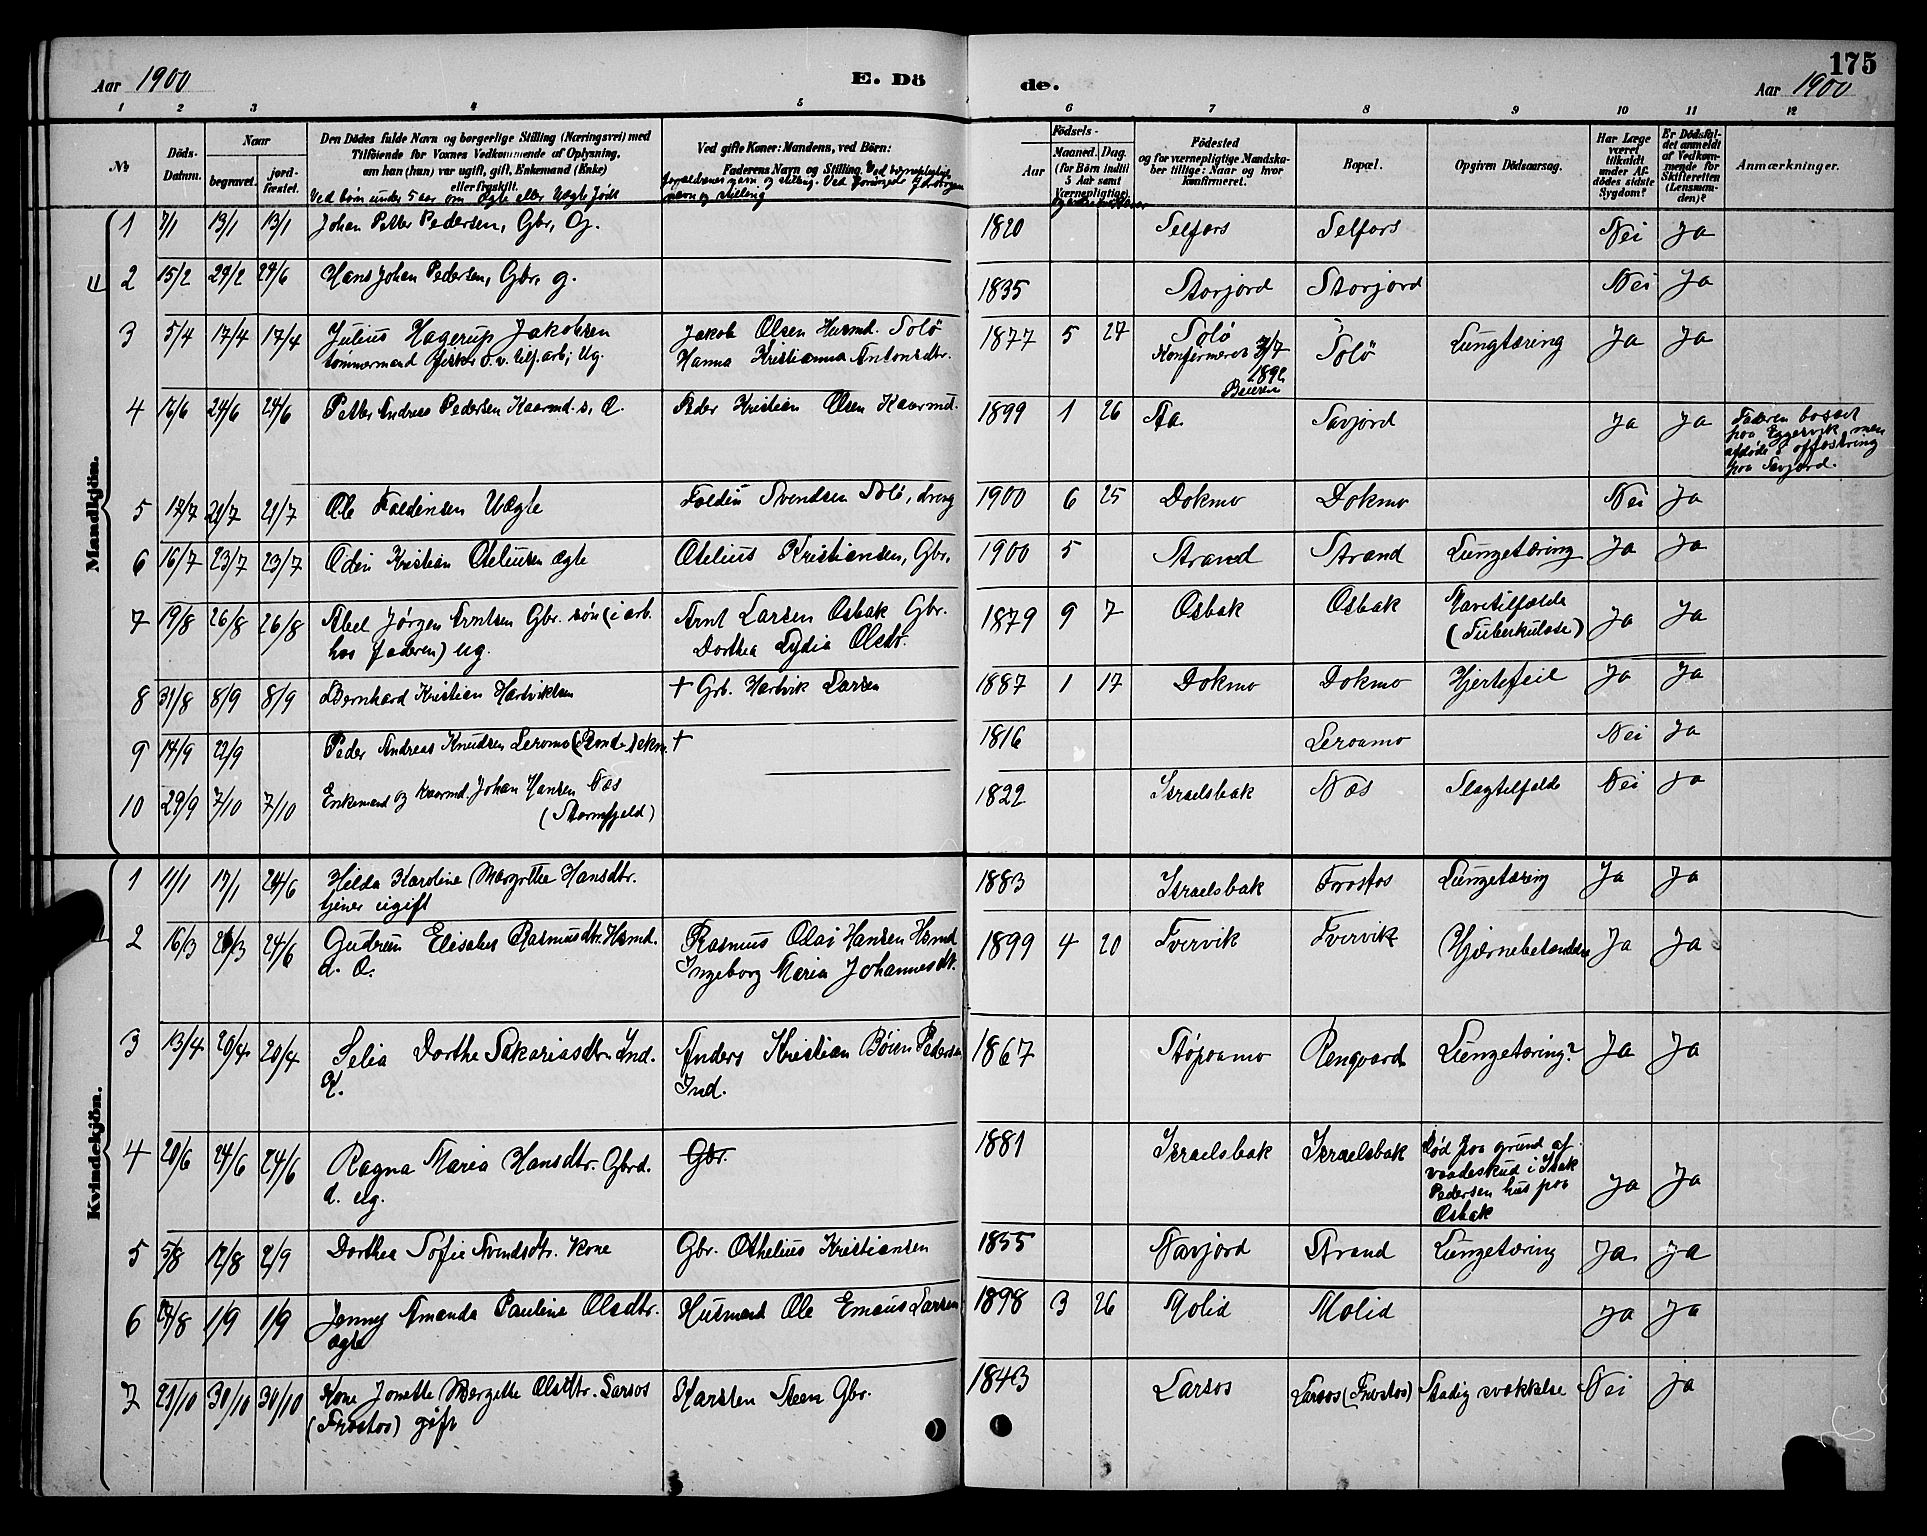 175
Aar 1900
E. Dö
de.
Aar 1900
1 2 3 4 5 6 7 8 9 10 11 12
№
Döds-Datum.
Naar
begravet.
jord-fæstet.
Den Dödes fulde Navn og borgerlige Stilling (Næringsvei) med
Tilföiende for Voxnes Vedkommende af Oplysning,
om han (hun) var ugift, gift, Enkemand (Enke)
eller fraskilt.
Ved börn under 5 aar om Ægte eller Uægte födt
Ved gifte Koner: Mandens, ved Börn:
Faderens Navn og Stilling.
navn og stilling
Aar
Födsels-
Maaned. Dag.
(for Börn indtil
5 Aar samt
Værnepligtige)
Födested
og for værnepligtige Mandska-
ber tillige: Naar og hvor
konfirmeret.
Bopæl.
Opgiven Dödsaarsag.
Har Læge
været
tilkaldt
under Af-
dödes sidste
Sygdom?
Er Dödsfal-
det anmeldt
af Vedkom-
mende for
Skifteretten
(Lensman-
den)?
Anmærkninger.
Mandkjön.
1 7/1 13/1 13/1 Johan Petter Pedersen, Gbr, G. 1820 Selfors Selfors Nei Ja
2 15/2 24/2 24/6 Hans Johan Pedersen, Gbr, g. 1835 Storjord Storjord Nei Ja
3 5/4 17/4 17/4 Julius Hagerup Jakobsen Jakob Olsen Husmd. Solö 1877 5 27 Solö Solö Lungtæring Ja Ja
tömmermand Ug. Hanna Kristianna Antonsdtr. Konfirmeret 3/7
1892
Beieren
4 16/6 24/6 24/6 Petter Andreas Pedersen Kaarmd. s, Æ. Peder Kristian Olsen Kaarmd. 1899 1 26 Aa Savjord Ja Ja Faderen bosset
paa Eggesvik men
paa Savjord.
5 17/7 21/7 21/7 Ole Foldinsen Uægte Foldin Svendsen Solö, dreng 1900 6 25 Dokmo Dokmo Nei Ja
6 16/7 23/7 23/7 Odin Kristian Oteliusen ægte Otelius Kristiansen, Gbr, 1900 5 Strand Strand Lungetæring Ja Ja
7 19/8 26/8 26/8 Abel Jørgen Arntsen Gbr. søn (i arb. Arnt Larsen Osbak Gbr. 1879 9 7 Osbak Osbak Ja Ja
hos faderen) ug. Dorthea Lydia Olsdtr. (Tuberkulose)
8 31/8 8/9 8/9 Bernhard Kristian Hartviksen + Gbr. Hartvik Larsen 1887 1 17 Dokmo Dokmo Hjertefeil Ja Ja
9 14/9 22/9 Peder Andreas Knudsen Leromo + 1816 Leroamo Nei Ja
10 29/9 7/10 7/10 Enkemand og Kaarmd Johan Hansen Næs 1822 Israelsbak Næs Slagtilfelde Nei Ja
(Stormfjeld)
Kvindekjön.
1 11/1 17/1 24/6 Hilda Karoline Margrethe Hansdtr. 1883 Israelsbak Frostos Lungetæring Ja Ja
tjener ugift
2 16/3 26/3 24/6 Gudrun Elisabet Rasmusdtr. Hsmd. Rasmus Olai Hansen Hsmd 1899 4 20 Tvervik Tvervik Hjernebetændelse Ja Ja
d. Æ. Ingeborg Maria Johannesdtr.
3 13/4 20/4 20/4 Selia Dorthe Sakariasdtr. Ind. Anders Kristian Böien Pedersen 1867 Støpoamo Rengaard Lungetæring? Ja Ja
K. Ind.
4 20/6 24/6 24/6 Ragna Maria Hansdtr. Gbrd. Gbr. 1881 Israelsbak Israelsbak död paa grund af Ja Ja
d. ug. vaadeskud i Isak
Pedersen hus paa
Osbak
5 5/8 12/8 2/9 Dorthea Sofie Svendsdtr. Kone Gbr. Othelius Kristiansen 1855 Navjord Strand Lungetæring Ja Ja
6 24/8 1/9 1/9 Jenny Amanda Pauline Olsdtr. Husmand Ole Emaus Larsen 1898 3 26 Molid Molid Ja Ja
ægte
7 21/10 30/10 30/10 Kone Jonette Margethe Olsdtr. Larsos Karsten Steen Gbr. 1843 Larsos Larsos (Frostos) Stadig svækkelse Nei Ja
(Frostos) gift